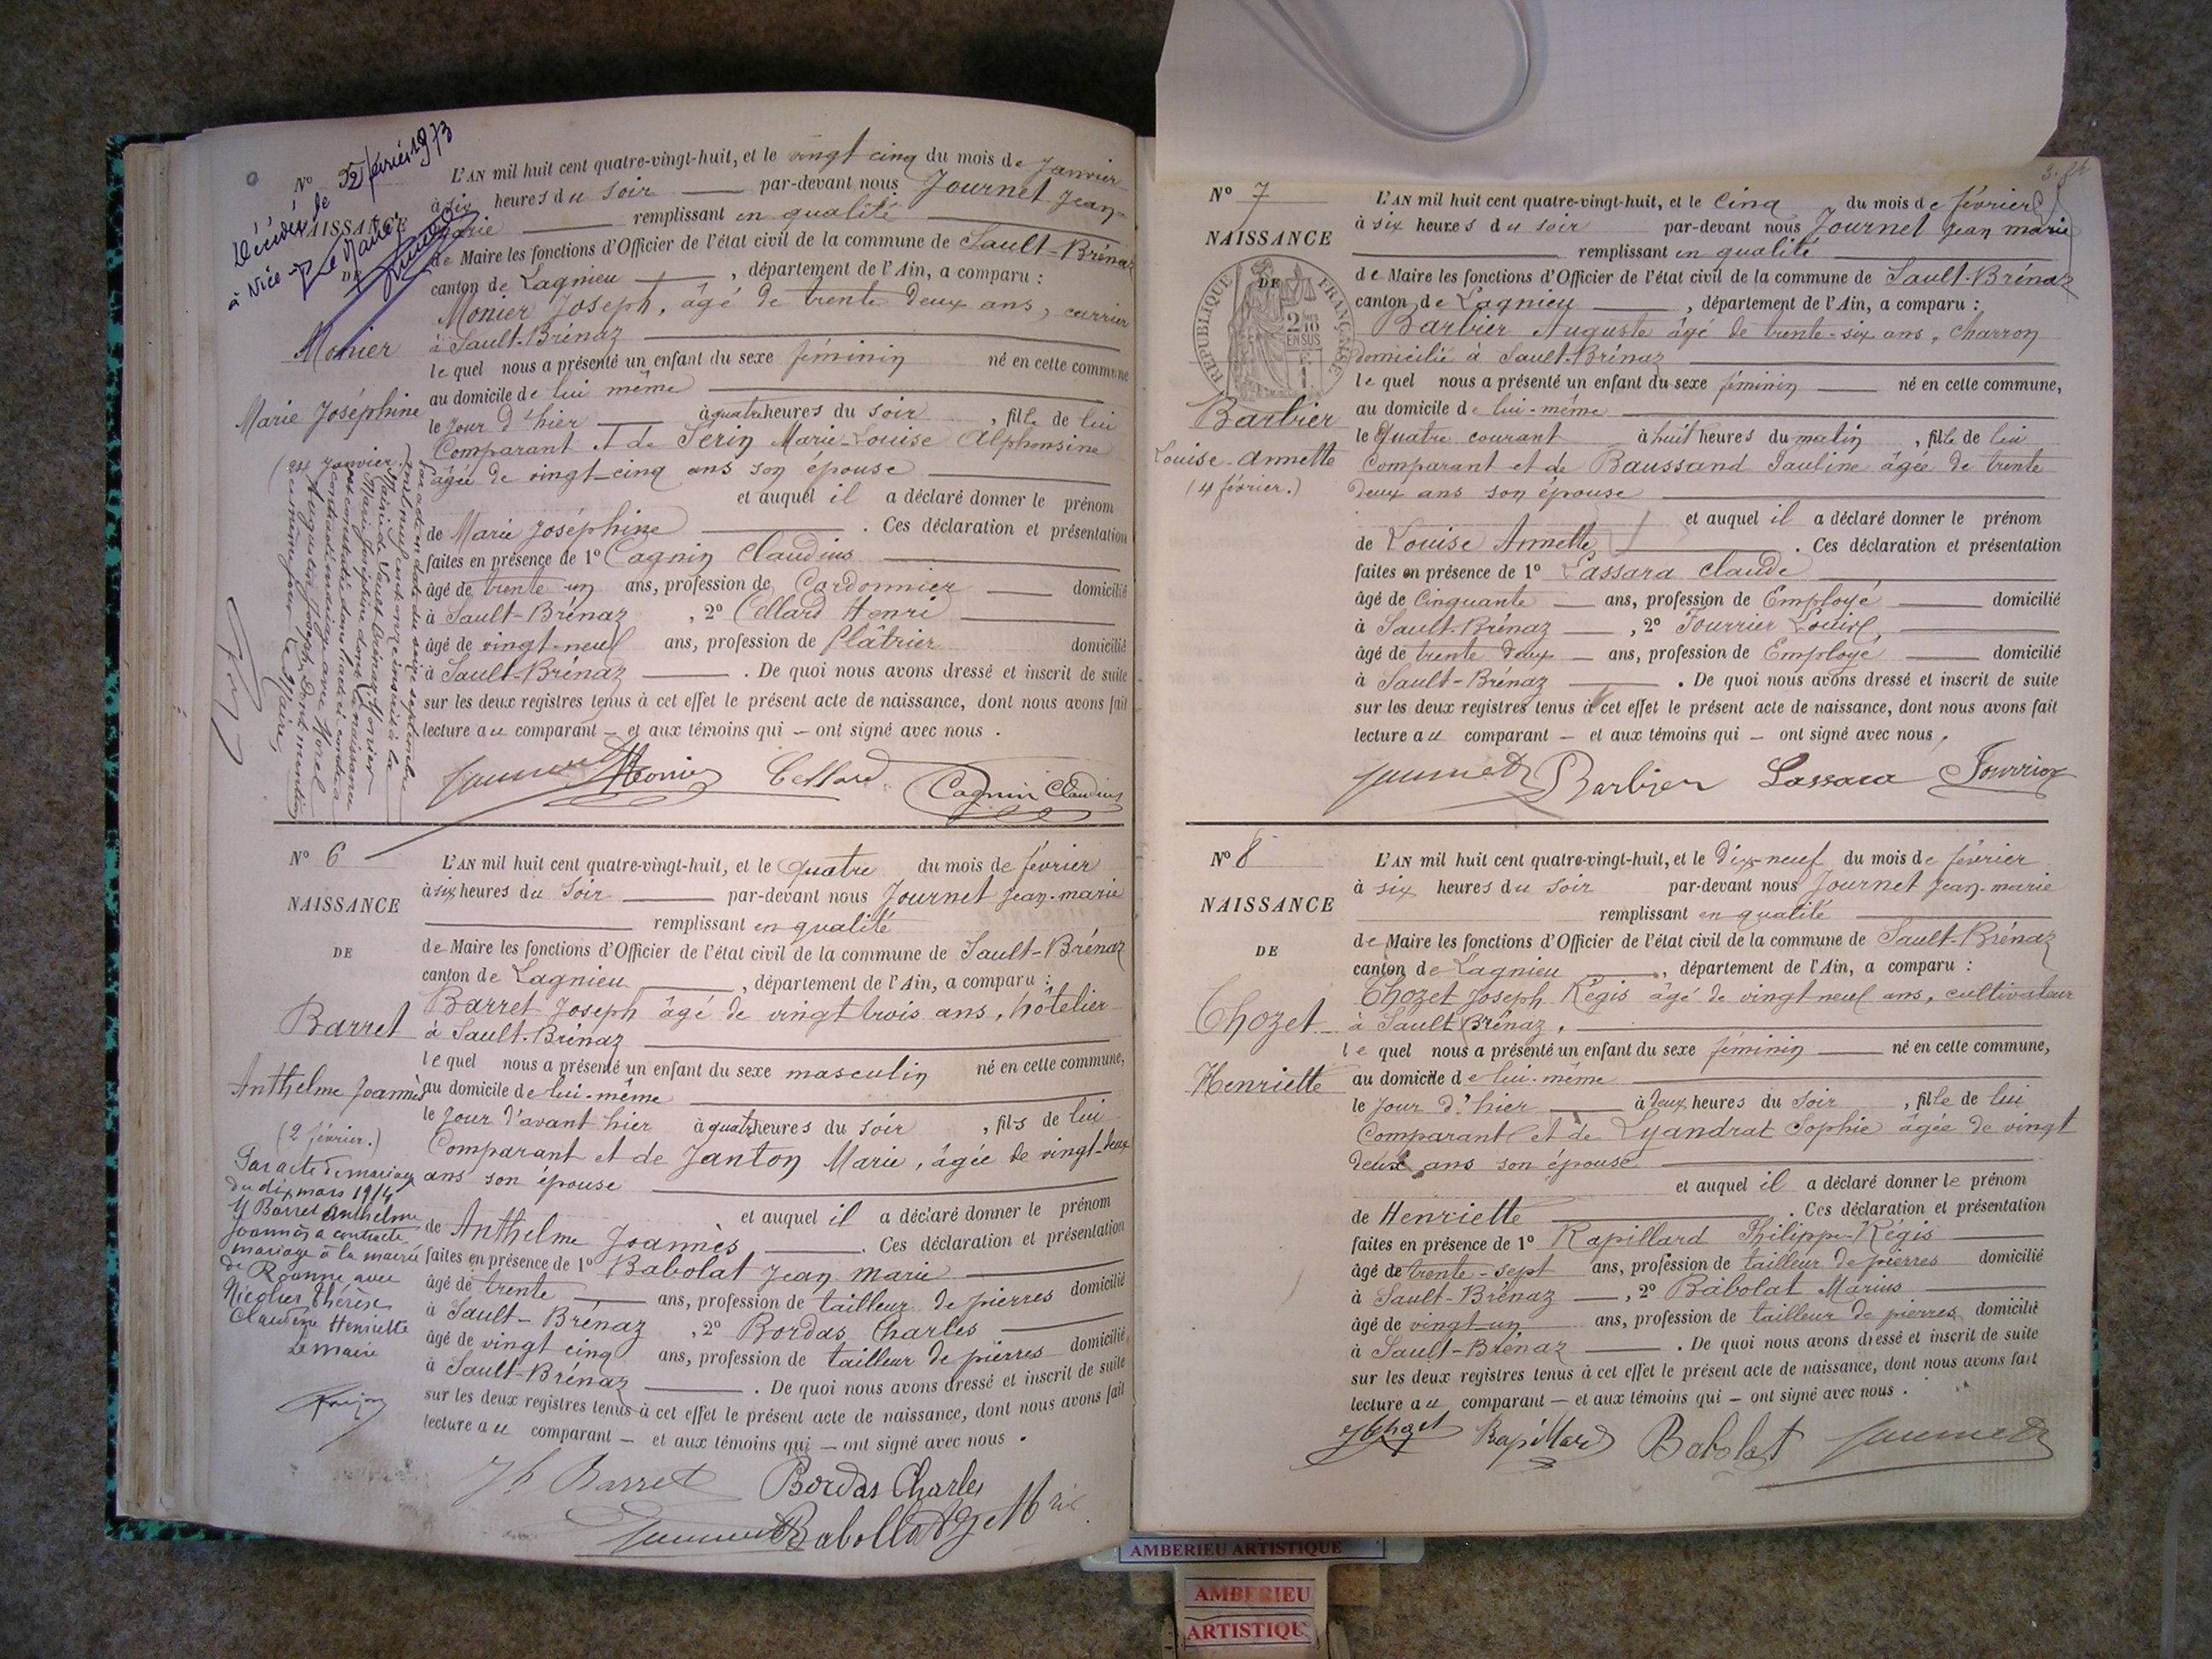 Nº 5
Décédée le 2 février 1973
à Nice
Le Maire
NAISSANCE
DE
Monier
Marie Joséphine
(24 Janvier.)
Par acte en date du seize septembre
mil neuf cent onze inscrit à la
Mairie de Sault-Brénaz Monier
Marie Joséphine dont la naissance
est constatée dans l'acte ci-contre a
contracté mariage avec Morel
Augustin Joseph. Dont mention
Le Maire,
L'AN mil huit cent quatre-vingt-huit, et le vingt cinq du mois de Janvier
à six heures du soir par-devant nous Journet Jean-
Marie remplissant en qualité
de Maire les fonctions d'Officier de l'état civil de la commune de Sault-Brénaz
canton de Lagnieu, département de l'Ain, a comparu :
Monier Joseph, âgé de trente deux ans, carrier
à Sault-Brénaz
lequel nous a présenté un enfant du sexe féminin né en cette commune
au domicile de lui même
le jour d'hier à quatre heures du soir, fille de lui
Comparant et de Serin Marie-Louise Alphonsine
âgée de vingt-cinq ans son épouse
et auquel il a déclaré donner le prénom
de Marie Joséphine. Ces déclaration et présentation
faites en présence de 1º Cagnin Claudius
âgé de trente un ans, profession de Cordonnier domicilié
à Sault-Brénaz, 2º Cellard Henri
âgé de vingt-neuf ans, profession de Plâtrier domicilié
à Sault-Brénaz. De quoi nous avons dressé et inscrit de suite
sur les deux registres tenus à cet effet le présent acte de naissance, dont nous avons fait
lecture au comparant — et aux témoins qui — ont signé avec nous.
Journet Monier Cellard Cagnin Claudius
Nº 6
NAISSANCE
DE
Barret
Anthelme Joannès
(2 février.)
Par acte de mariage
du dix mars 1914
M Barret Anthelme
Joannès a contracté
mariage à la mairie
de Roanne avec
Nicolier Thérèse
Claudine Henriette
Le maire
L'AN mil huit cent quatre-vingt-huit, et le quatre du mois de février
à six heures du soir par-devant nous Journet Jean-marie
remplissant en qualité
de Maire les fonctions d'Officier de l'état civil de la commune de Sault-Brénaz
canton de Lagnieu, département de l'Ain, a comparu :
Barret Joseph âgé de vingt trois ans, hôtelier
à Sault-Brénaz
lequel nous a présenté un enfant du sexe masculin né en cette commune,
au domicile de lui-même
le jour d'avant hier à quatre heures du soir, fils de lui
Comparant et de Janton Marie, âgée de vingt-deux
ans son épouse
et auquel il a déclaré donner le prénom
de Anthelme Joannès. Ces déclaration et présentation
faites en présence de 1º Babolat Jean marie
âgé de trente ans, profession de tailleur de pierres domicilié
à Sault-Brénaz, 2º Bordas Charles
âgé de vingt cinq ans, profession de tailleur de pierres domicilié
à Sault-Brénaz. De quoi nous avons dressé et inscrit de suite
sur les deux registres tenus à cet effet le présent acte de naissance, dont nous avons fait
lecture au comparant — et aux témoins qui — ont signé avec nous.
Jh Barret Bordas Charles
Journet Babollat Je Mrie
Nº 7
NAISSANCE
DE
RÉPUBLIQUE FRANÇAISE
2/10 EN SUS
Barbier
Louise-Annette
(4 février.)
L'AN mil huit cent quatre-vingt-huit, et le Cinq du mois de février
à six heures du soir par-devant nous Journet Jean marie
remplissant en qualité
de Maire les fonctions d'Officier de l'état civil de la commune de Sault-Brénaz
canton de Lagnieu, département de l'Ain, a comparu :
Barbier Auguste âgé de trente-six ans, charron
domicilié à Sault-Brénaz
lequel nous a présenté un enfant du sexe féminin né en cette commune,
au domicile de lui-même
le quatre courant à huit heures du matin, fille de lui
Comparant et de Baussand Pauline âgée de trente
deux ans son épouse
et auquel il a déclaré donner le prénom
de Louise Annette. Ces déclaration et présentation
faites en présence de 1º Lassara Claude
âgé de Cinquante ans, profession de Employé domicilié
à Sault-Brénaz, 2º Fourrier Louis,
âgé de trente deux ans, profession de Employé domicilié
à Sault-Brénaz. De quoi nous avons dressé et inscrit de suite
sur les deux registres tenus à cet effet le présent acte de naissance, dont nous avons fait
lecture au comparant — et aux témoins qui — ont signé avec nous.
Journet Barbier Lassara Fourrier
Nº 8
NAISSANCE
DE
Chozet
Henriette
L'AN mil huit cent quatre-vingt-huit, et le Dix-neuf du mois de février
à six heures du soir par-devant nous Journet Jean-marie
remplissant en qualité
de Maire les fonctions d'Officier de l'état civil de la commune de Sault-Brénaz
canton de Lagnieu, département de l'Ain, a comparu :
Chozet Joseph Régis âgé de vingt neuf ans, cultivateur
à Sault Brénaz.
lequel nous a présenté un enfant du sexe féminin né en cette commune,
au domicile de lui-même
le jour d'hier à deux heures du soir, fille de lui
Comparant et de Lyandrat Sophie âgée de vingt
deux ans son épouse
et auquel il a déclaré donner le prénom
de Henriette. Ces déclaration et présentation
faites en présence de 1º Rapillard Philippe-Régis
âgé de trente-sept ans, profession de tailleur de pierres domicilié
à Sault-Brénaz, 2º Babolat Marius
âgé de vingt-un ans, profession de tailleur de pierres domicilié
à Sault-Brénaz. De quoi nous avons dressé et inscrit de suite
sur les deux registres tenus à cet effet le présent acte de naissance, dont nous avons fait
lecture au comparant — et aux témoins qui — ont signé avec nous.
Chozet Rapillard Babolat Journet
AMBERIEU ARTISTIQUE
AMBERIEU
ARTISTIQU